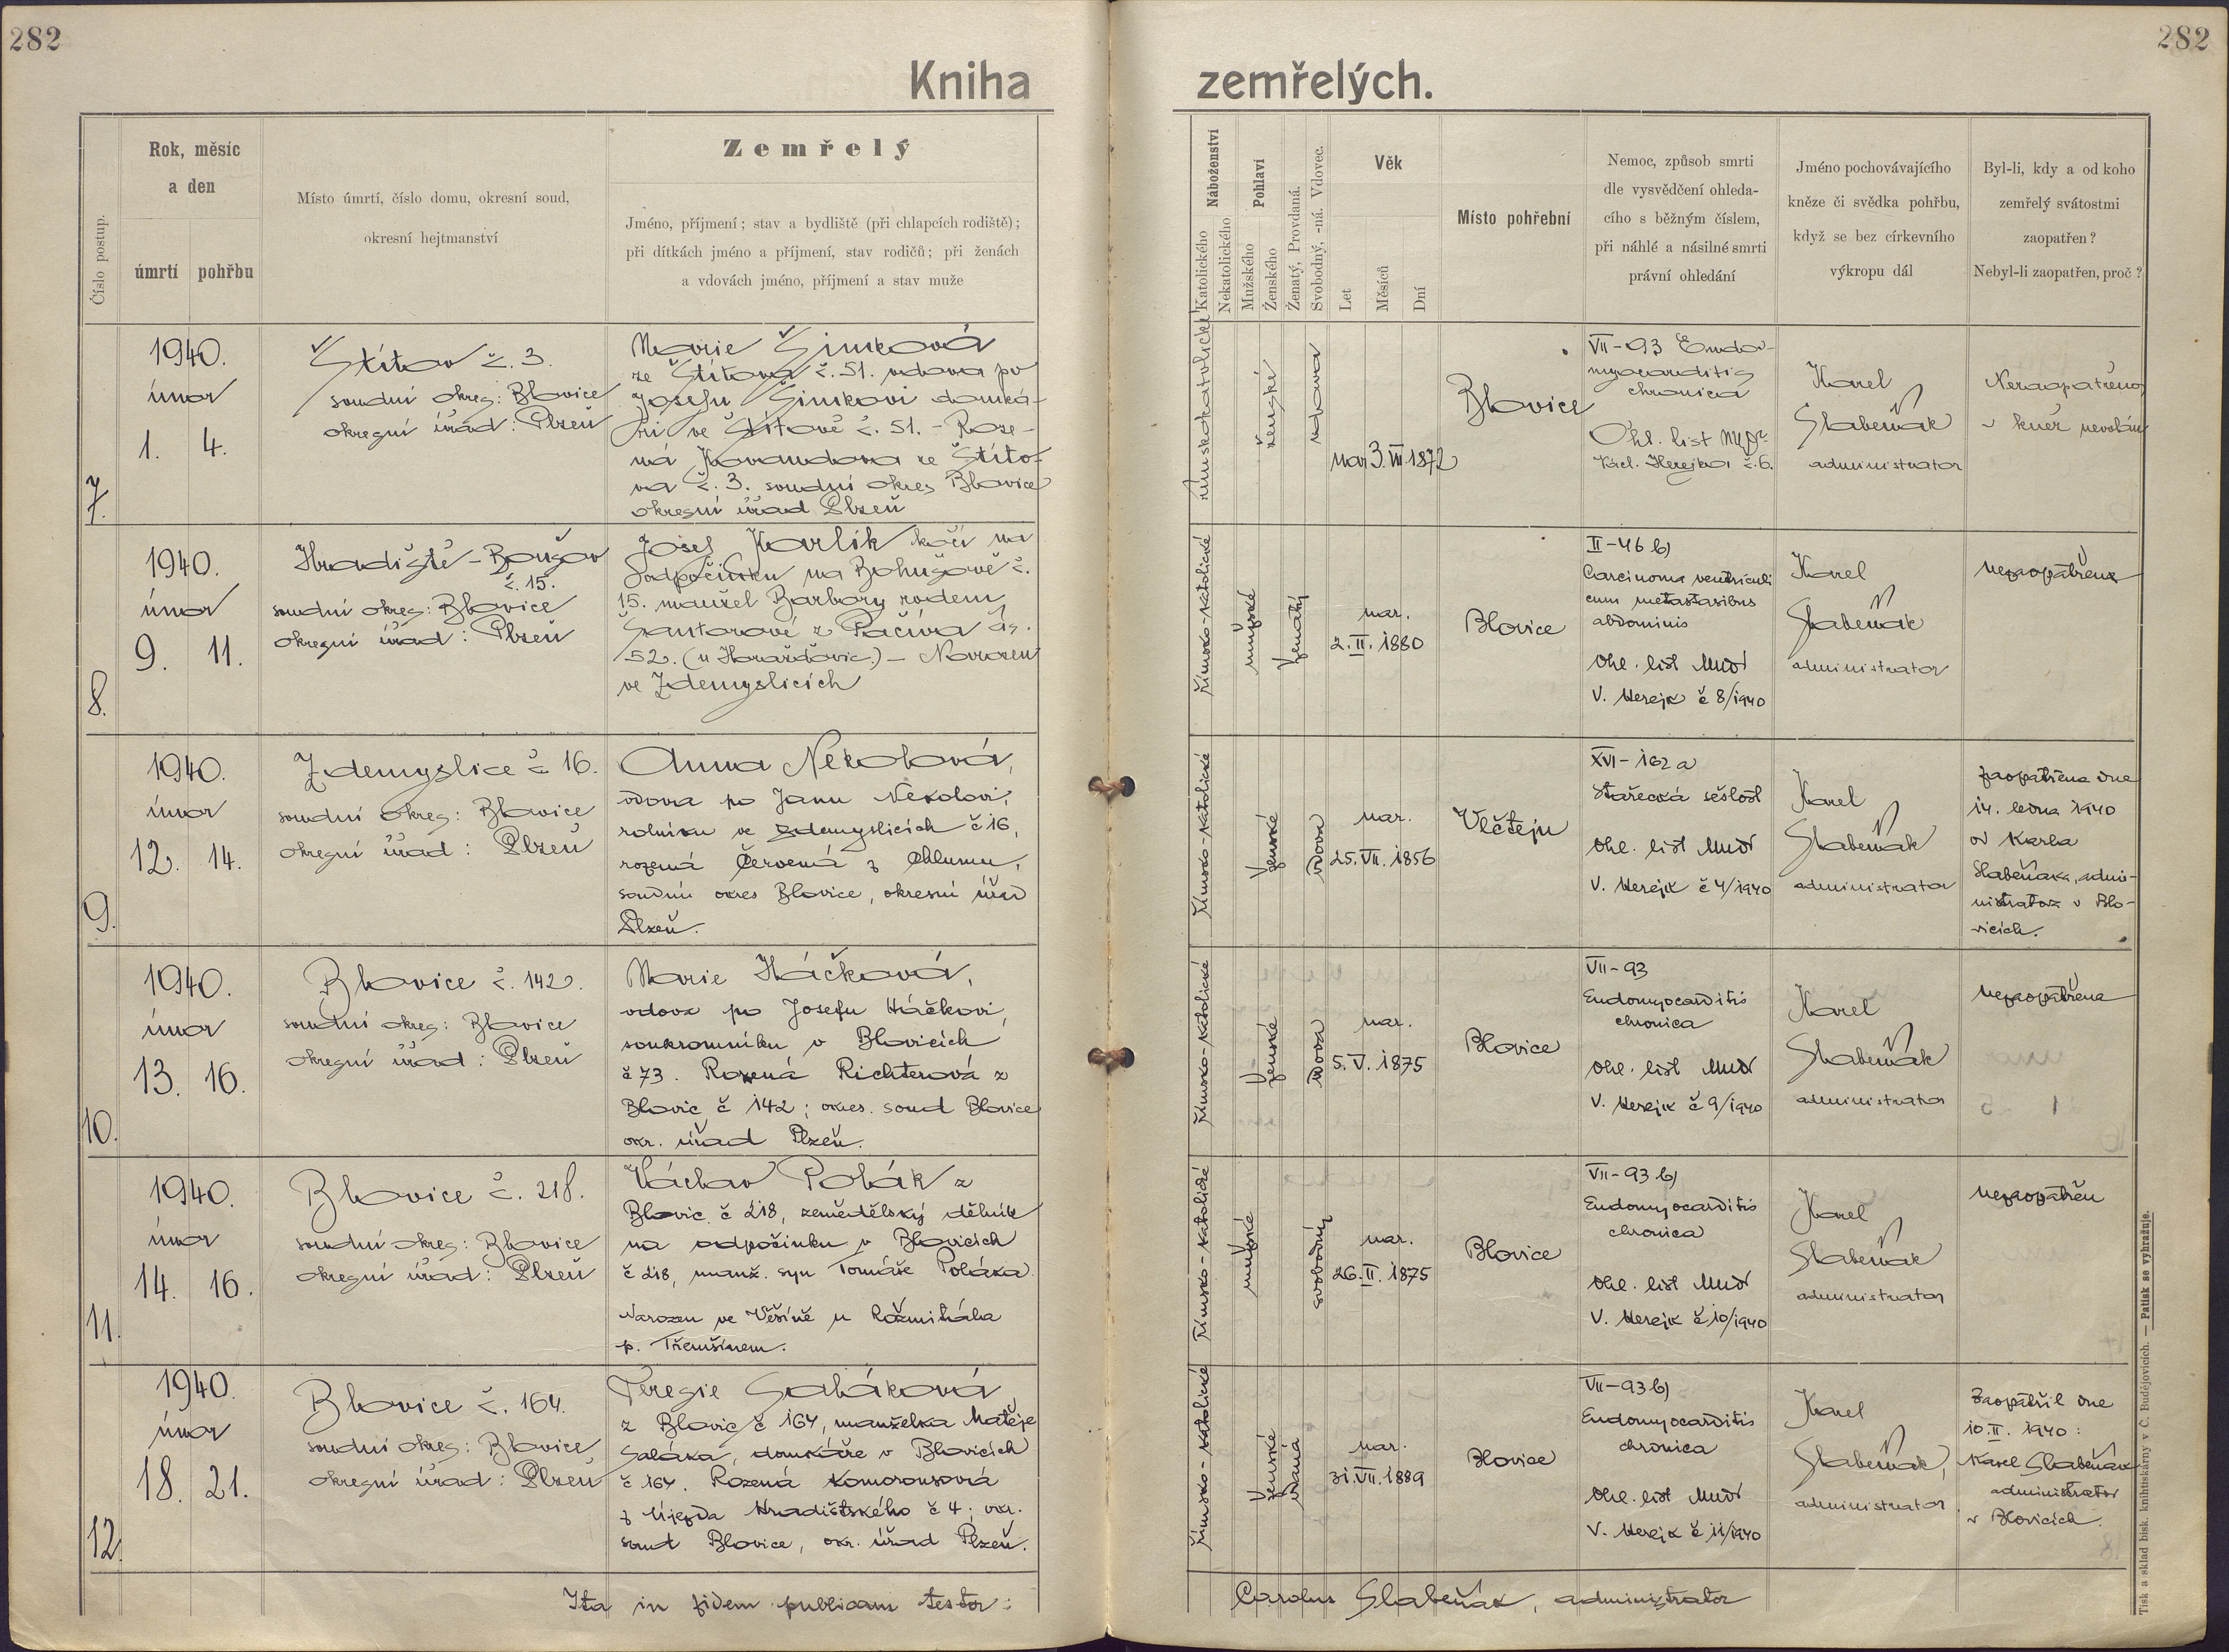 282
282
Kniha zemřelých.
Číslo postup.
Rok, měsíc
a den
úmrtí pohřbu
Místo úmrtí, číslo domu, okresní soud,
okresní hejtmanství
Zemřelý
Jméno, příjmení; stav a bydliště (při chlapcích rodiště);
při dítkách jméno a příjmení, stav rodičů; při ženách
a vdovách jméno, příjmení a stav muže
Náboženství
Katolického
Nekatolického
Pohlaví
Mužského
Ženského
Ženatý, Provdaná.
Svobodný, -ná. Vdovec.
Věk
Let
Měsíců
Dní
Místo pohřební
Nemoc, způsob smrti
dle vysvědčení ohleda-
cího s běžným číslem,
při náhlé a násilné smrti
právní ohledání
Jméno pochovávajícího
kněze či svědka pohřbu,
když se bez církevního
výkropu dál
Byl-li, kdy a od koho
zemřelý svátostmi
zaopatřen?
Nebyl-li zaopatřen, proč?
7.
1940.
únor
1. 4.
Štítov č. 3.
soudní okres: Blovice
okresní úřad: Plzeň
Marie Šimková
ze Štítova č. 51. vdova po
Josefu Šimkovi domká-
ři ve Štítově č. 51. - Roze-
ná Kovandova ze Štíto-
va č. 3. soudní okres Blovice
okresní úřad Plzeň
římskokatolické
ženské
vdova
nar. 3. III. 1872
Blovice
VII-93 Endo-
myocarditis
chronica
Ohl. list MUDr
Václ. Herejka č. 6.
Karel
Slabeňák
administrator
Nezaopatřena,
kněz nevolán
8.
1940.
únor
9. 11.
Hradiště - Bohušov
č. 15.
soudní okres: Blovice
okresní úřad: Plzeň
Josef Karlík kočí na
odpočinku na Bohušově č.
15. manžel Barbory rodem
Šantorové z Pačíva čís.
52. (u Horažďovic.) - Narozen
ve Zdemyslicích
Římsko-katolické
mužské
Ženatý
nar.
2. II. 1880
Blovice
II-46 b)
Carcinoma ventriculi
cum metastasibus
abdominis
Ohl. list MUDr
V. Herejk č 8/1940
Karel
Slabeňák
administrator
nezaopatřen
9.
1940.
únor
12. 14.
Zdemyslice č 16.
soudní okres: Blovice
okresní úřad: Plzeň
Anna Nekolová,
vdova po Janu Nekolovi,
rolníku ve Zdemyslicích č 16,
rozená Červená z Chlumu,
soudní okres Blovice, okresní úřad
Plzeň.
Římsko-katolické
Ženské
vdova
nar.
25. VII. 1856
Vlčtejn
XVI-162 a
Stařecká sešlost
Ohl. list MUDr
V. Herejk č 4/1940
Karel
Slabeňák
administrator
zaopatřena dne
14. ledna 1940
od Karla
Slabeňáka, admi-
nistratora v Blo-
vicích.
10.
1940.
únor
13. 16.
Blovice č. 142.
soudní okres: Blovice
okresní úřad: Plzeň
Marie Háčková,
vdova po Josefu Háčkovi,
soukromníku v Blovicích
č 73. Rozená Richterová z
Blovic č 142; okres. soud Blovice
okr. úřad Plzeň.
Římsko-katolické
Ženské
vdova
nar.
5. V. 1875
Blovice
VII-93
Endomyocarditis
chronica
Ohl. list MUDr
V. Herejk č 9/1940
Karel
Slabeňák
administrator
nezaopatřena
11.
1940.
únor
14. 16.
Blovice č. 218.
soudní okres: Blovice
okresní úřad: Plzeň
Václav Polák z
Blovic č 218, zemědělský dělník
na odpočinku v Blovicích
č 218, manž. syn Tomáše Poláka.
Narozen ve Věšíně u Rožmitála
p. Třemšínem.
Římsko-katolické
mužské
svobodný
nar.
26. II. 1875
Blovice
VII-93 b)
Endomyocarditis
chronica
Ohl. list MUDr
V. Herejk č 10/1940
Karel
Slabeňák
administrator
nezaopatřen
12.
1940.
únor
18. 21.
Blovice č. 164.
soudní okres: Blovice
okresní úřad: Plzeň
Terezie Saláková
z Blovic č 164, manželka Matěje
Saláka, domkáře v Blovicích
č 164. Rozená Komorousová
z Újezda Hradišťského č 4; okr.
soud Blovice, okr. úřad Plzeň.
Římsko-katolické
Ženské
vdaná
nar.
31. VII. 1889
Blovice
VII-93 b)
Endomyocarditis
chronica
Ohl. list MUDr
V. Herejk č 11/1940
Karel
Slabeňák,
administrator
Zaopatřil dne
10. II. 1940:
Karel Slabeňák
administrator
v Blovicích.
Ita in fidem publicam testor:
Carolus Slabeňák, administrator
Tisk a sklad bisk. knihtiskárny v Č. Budějovicích. — Patisk se vyhražuje.